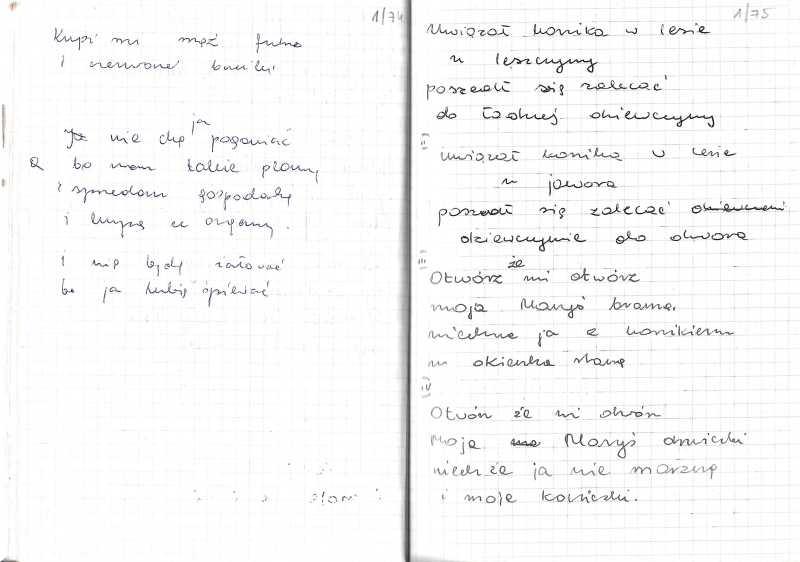 1/74
Kupi mi mąż futro
i czerwone buciki
ja
nie chcę poganiać
bo mam takie plany
i sprzedam gospodarkę
i kupię ci organy.
i nie będę żałować
bo ja lubię śpiewać
1/75
Uwiązał konika w lesie
u leszczyny
poszedł się zalecać
do ładnej dziewczyny
II
uwiązał konika w lesie
u jawora
poszedł się zalecać
dziewczynie do dwora
III
że
Otwórz mi otwórz
moja Maryś bramę,
niechne ja z konikiem
w okienku stanę
IV
Otwórz że mi otwórz
Moja Maryś drwiczki
niech że ja nie marznę
i moje koniczki.